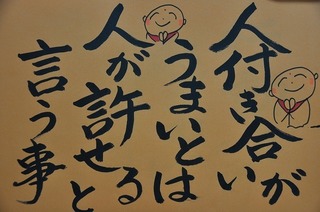 人付き合いが
うまいとは
人が許せると
言う事